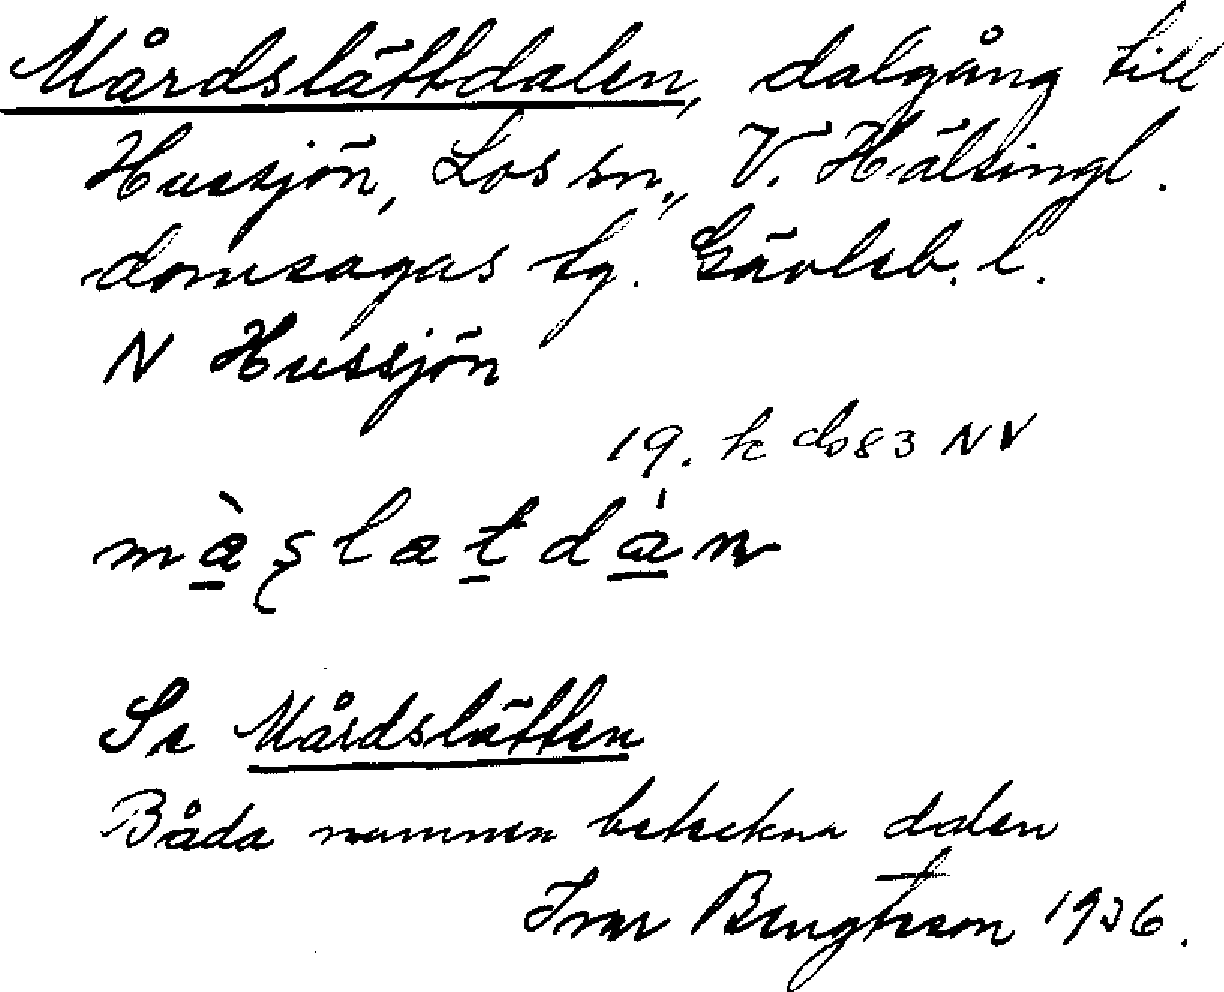 Mårdslättdalen, dalgång till
Hussjön, Los sn., V. Hälsingl.
domsagas tg. Gävleb. l.
N Hussjön
19. 83 NV
màșlatdán
Se Mårdslätten
Båda namnen beteckna dalen
Ivar Bengtsson 1936.